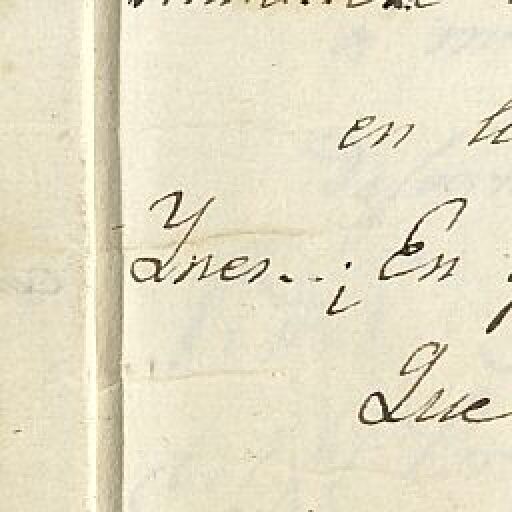 en
Ynes... ¡En
Que